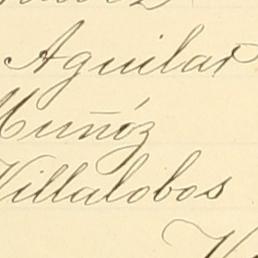 Aguilar
Muñóz
Villalobos